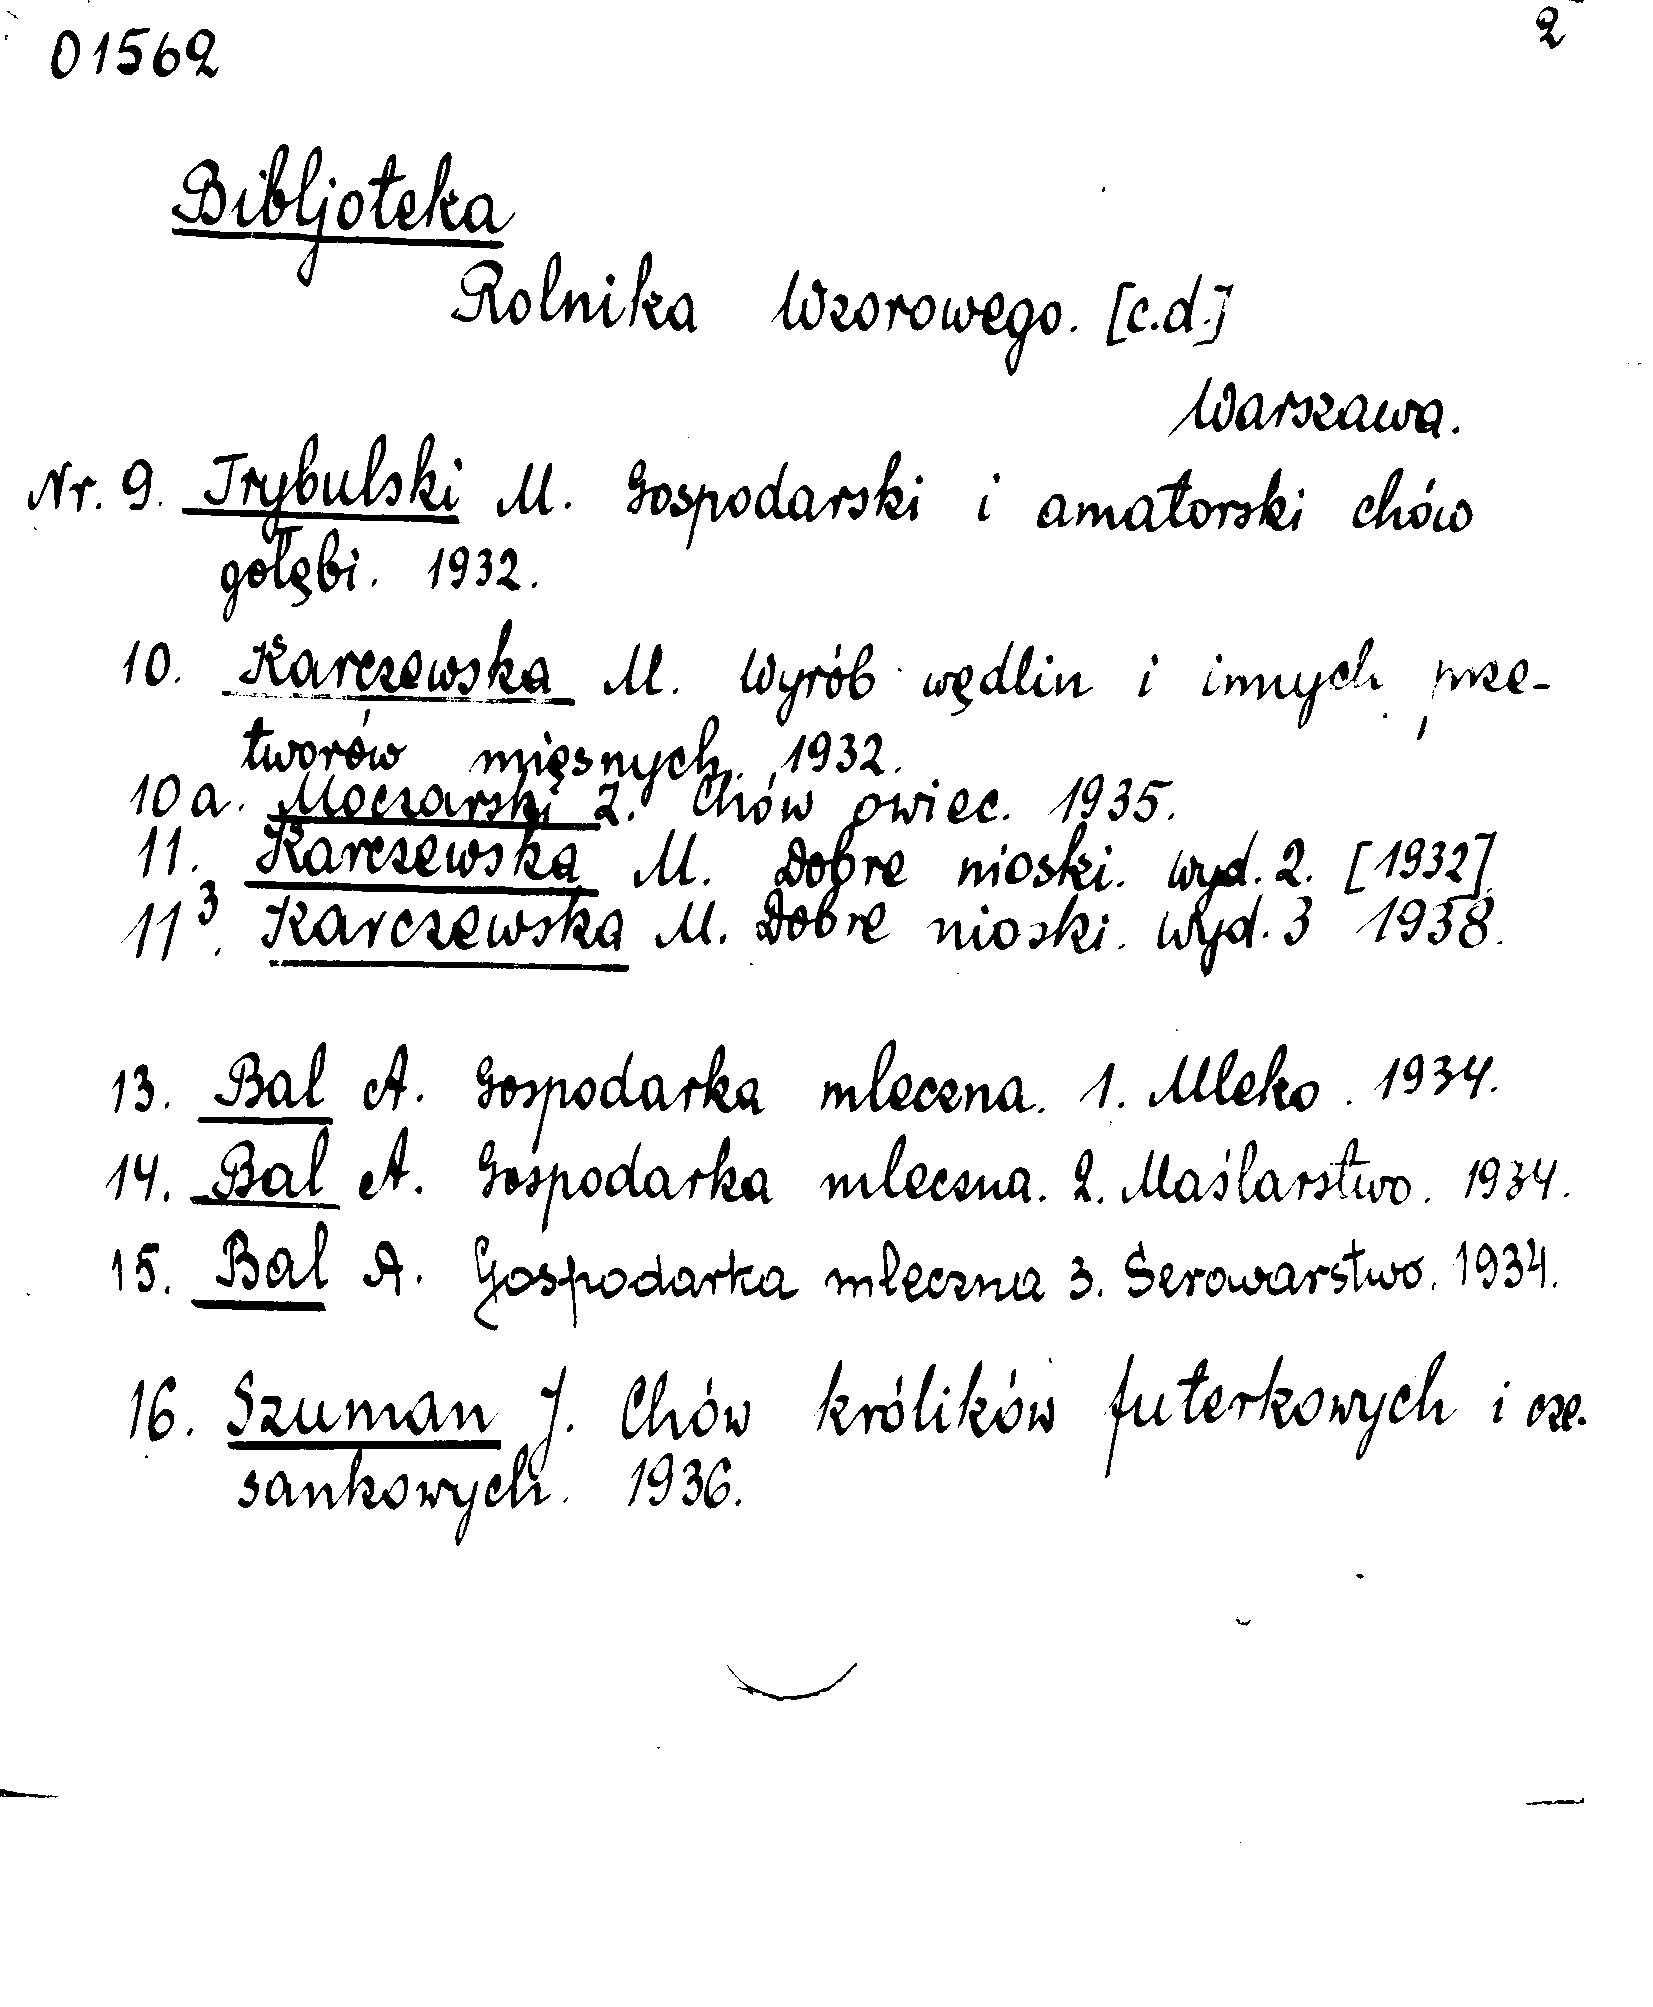 01562
2
Bibljoteka
Rolnika Wzorowego. [c.d.]
Warszawa.
Nr. 9. Trybulski M. Gospodarski i amatorski chów
gołębi. 1932.
10. Karczewska M. Wyrób wędlin i innych prze-
tworów mięsnych. 1932.
10a. Moczarski Z. Chów owiec. 1935.
11. Karczewska M. Dobre nioski. wyd. 2. [1932].
11³. Karczewska M. Dobre nioski. wyd. 3 1938.
13. Bal A. Gospodarka mleczna. 1. Mleko. 1934.
14. Bal A. Gospodarka mleczna. 2. Maślarstwo. 1934.
15. Bal A. Gospodarka mleczna 3. Serowarstwo. 1934.
16. Szuman J. Chów królików futerkowych i cze-
sankowych. 1936.